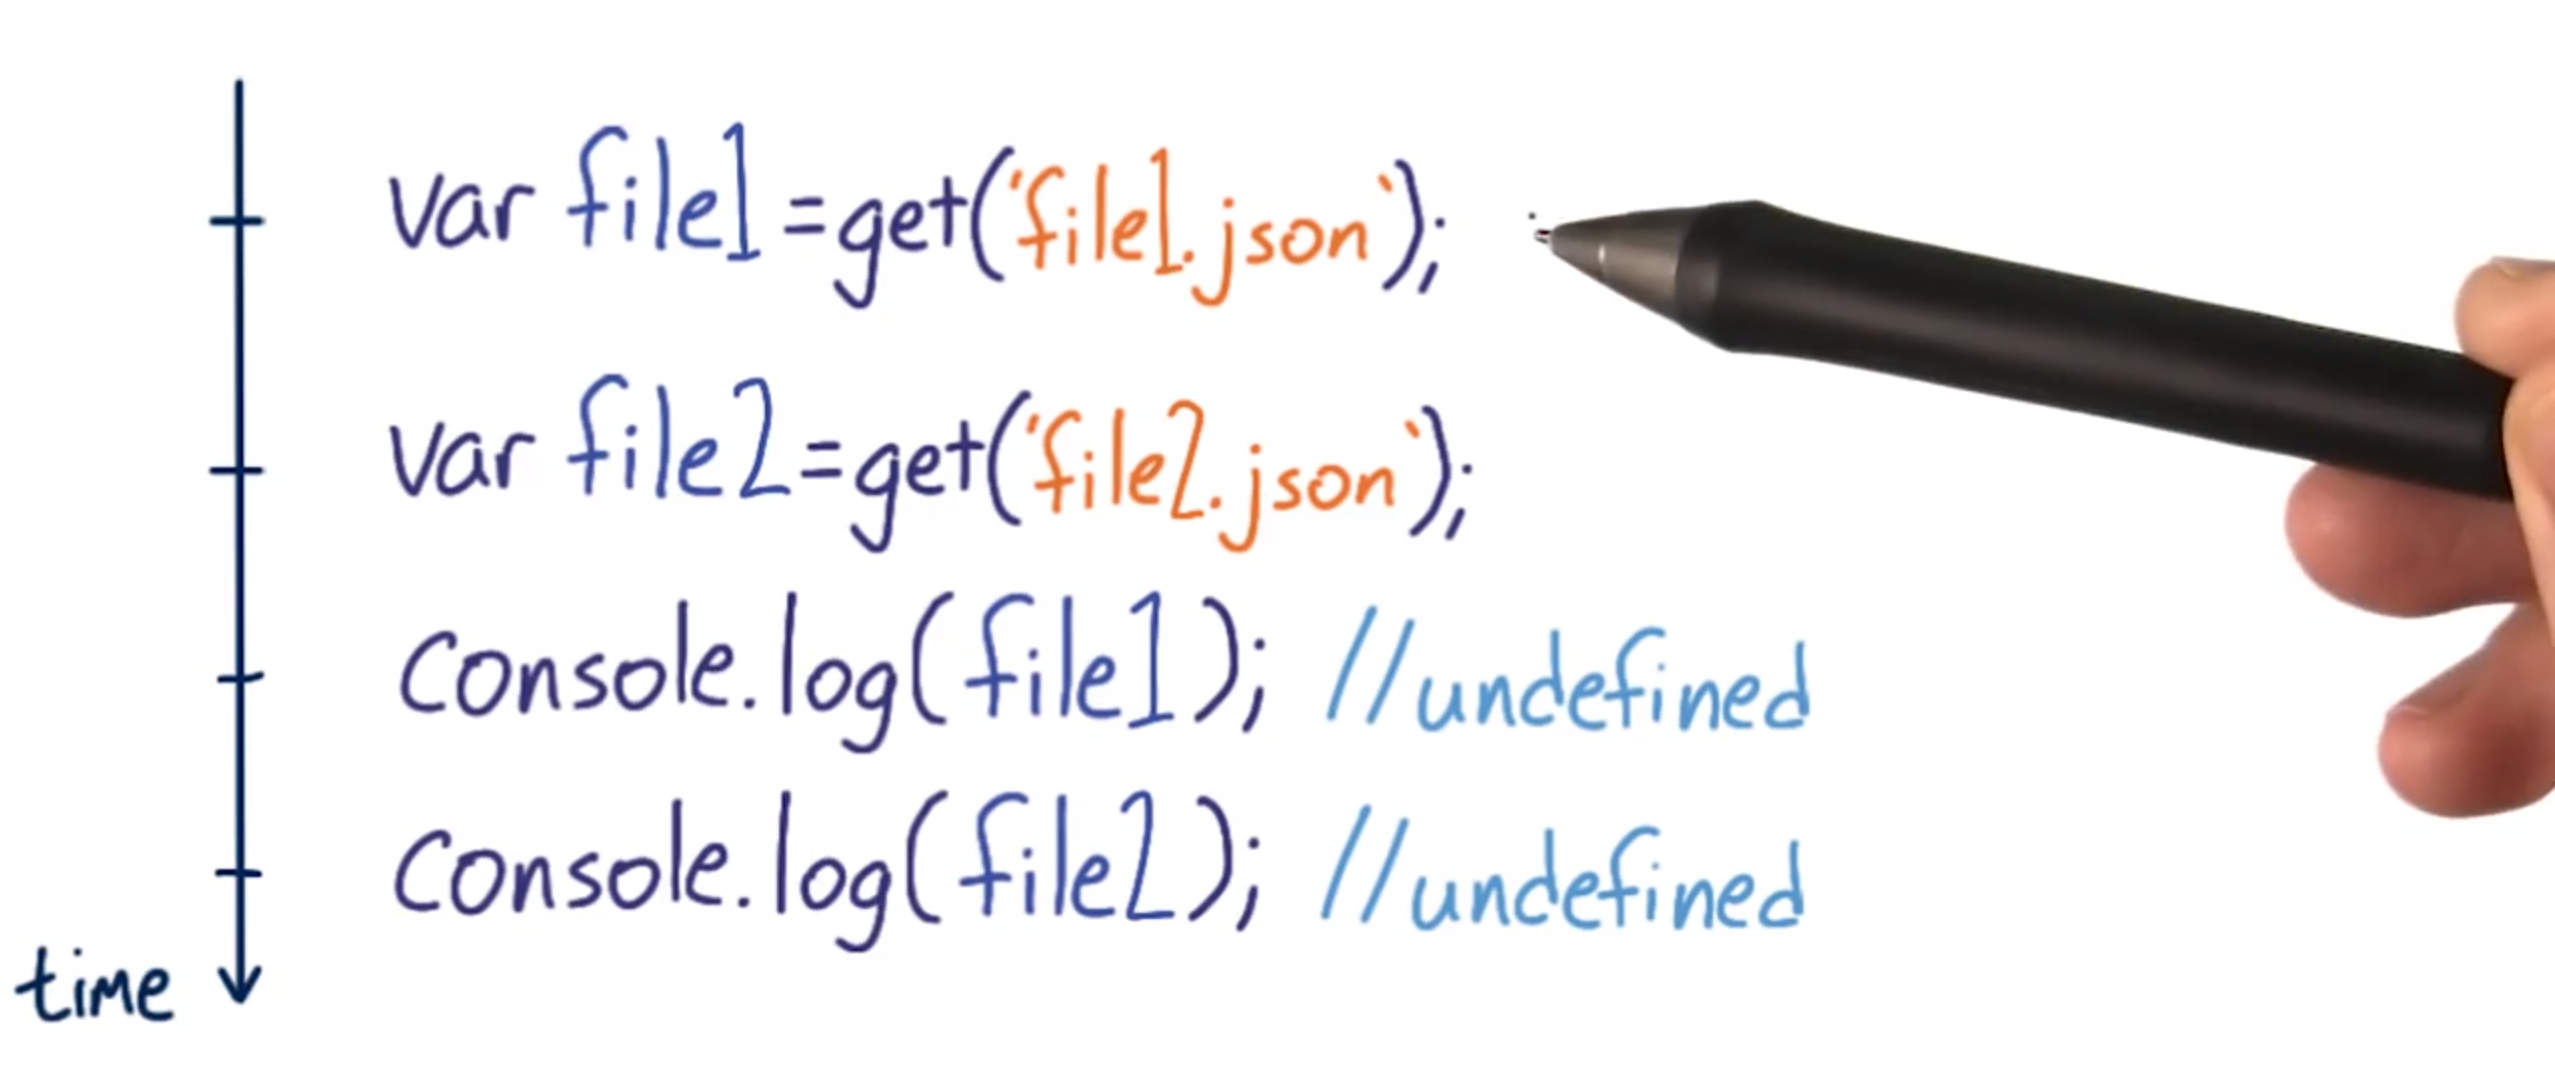 var file1 = get('file1.json');
var file2 = get('file2.json');
Console.log(file1); //undefined
Console.log(file2); //undefined
time